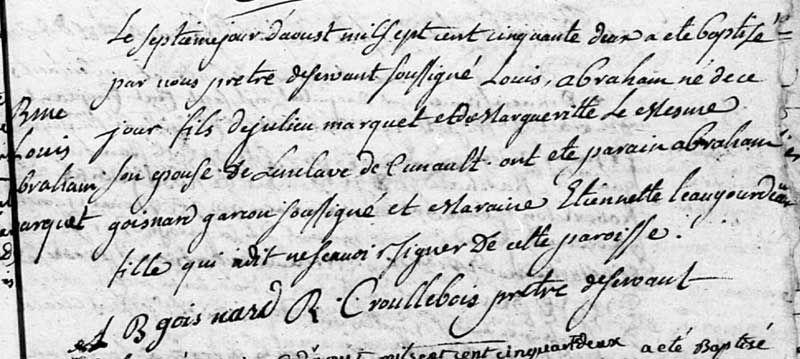 Le septieme jour d'aoust mil sept cent cinquante deux a eté baptisé
par nous prètre deservant soussigné Louis, abraham né de ce
jour fils de julien marquet et de Margueritte Le Mesme
son epouse de Lenclave de Cunault. ont eté parain abraham
goisnard garcon soussigné et Maraine Etiennette
fille qui a dit ne scavoir signer de cette paroisse.
Bme
Louis
braham
arquet
goisnard R. Croullebois prètre deservant
mil sept cent cinquante deux a eté Baptisé